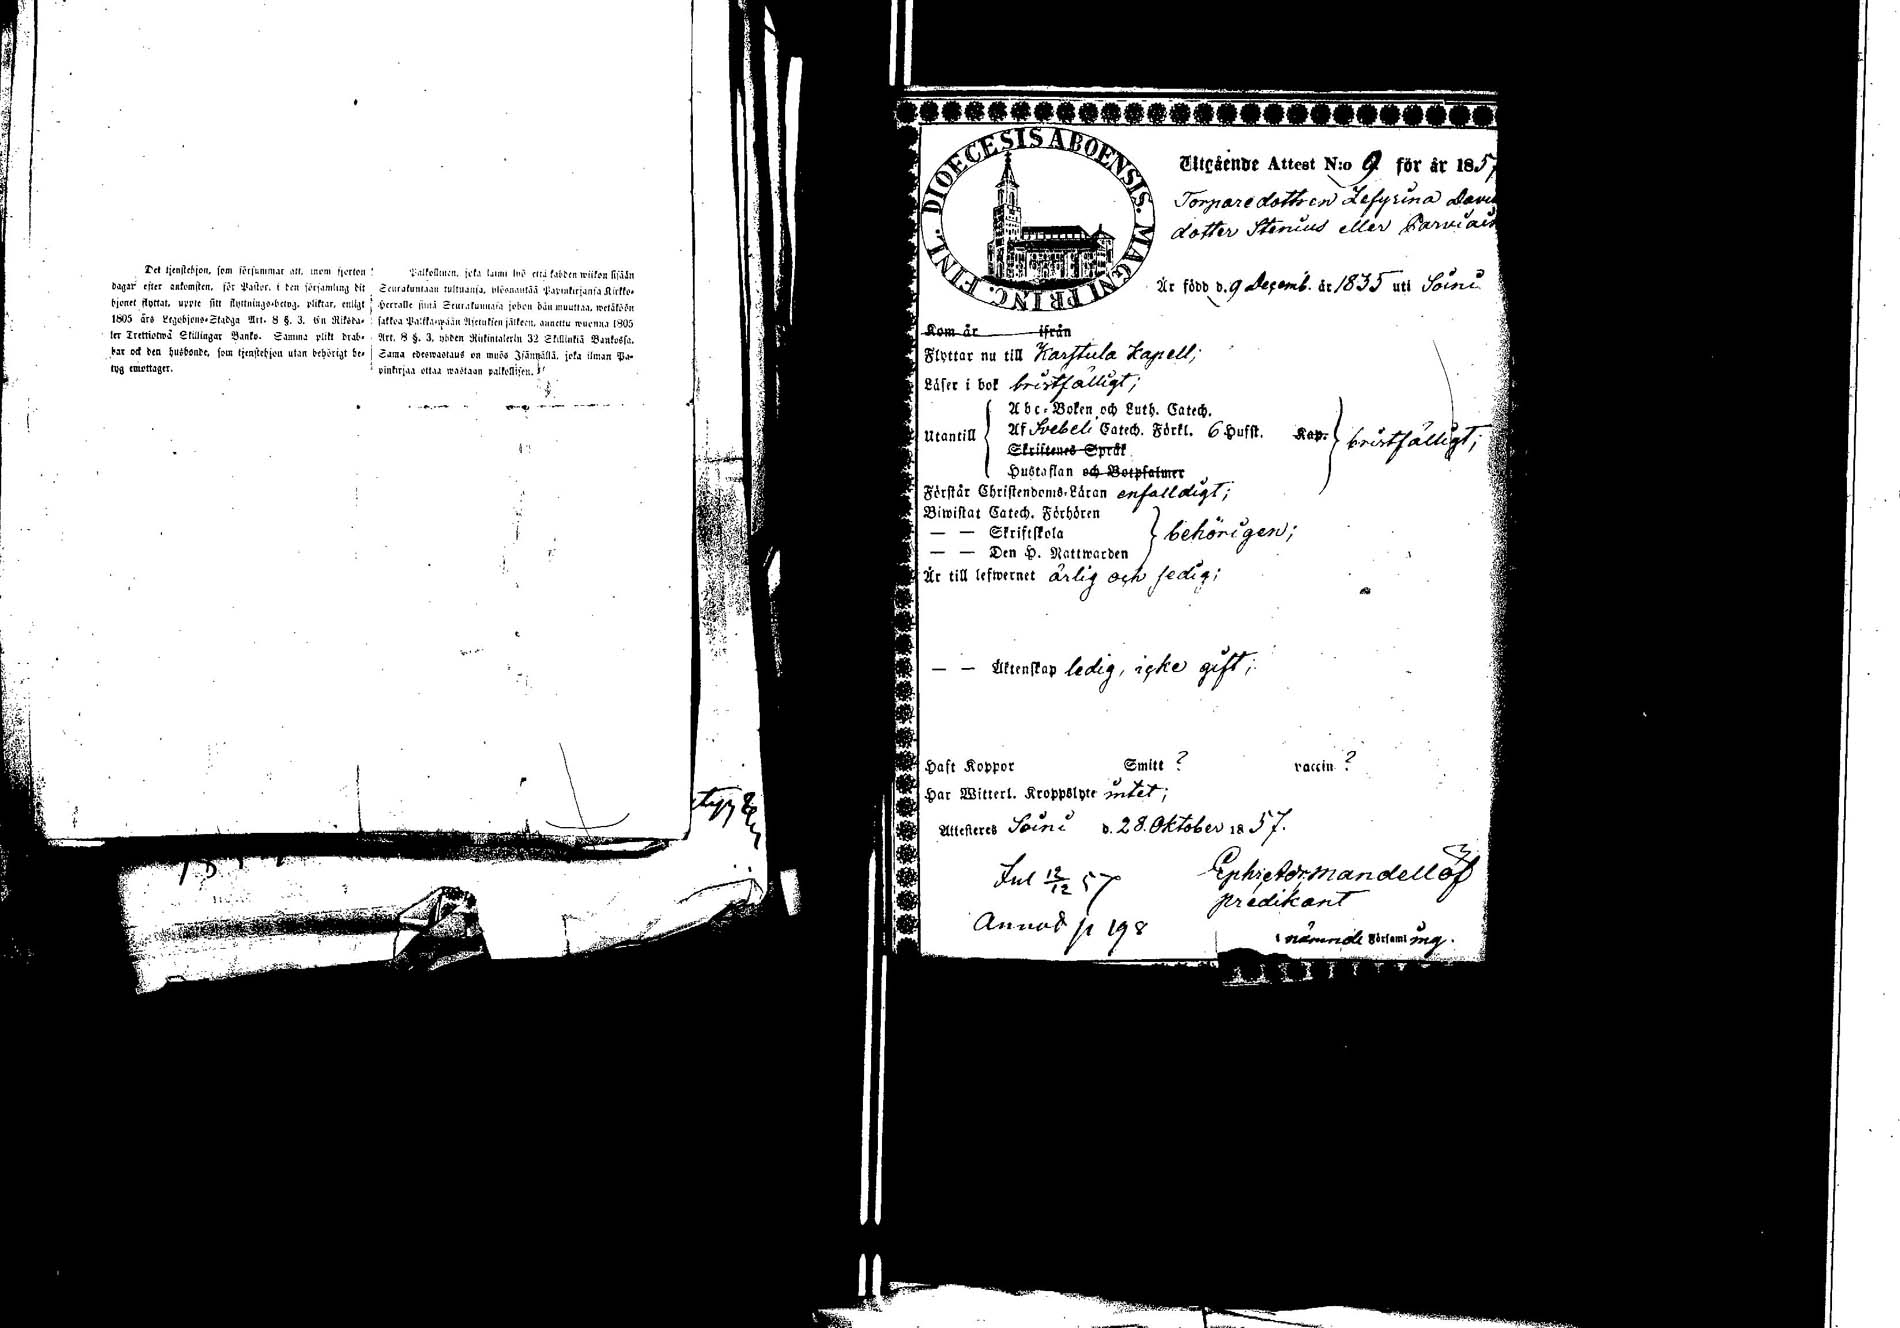 Det tjenstehjon, som försummar att, inom fjorton
dagar efter ankomsten, för Pastor, i den församling dit
hjonet flyttat, uppte sitt flyttnings-betyg, pliktar, enligt
1805 års Legohjons-Stadga Art. 8 §. 3. En Riksda-
ler Trettiotwå Skillingar Banko. Samma plikt drab-
bar ock den husbonde, som tjenstehjon utan behörigt be-
tyg emottager.
Palkollinen, joka laimi lyö että kahden wiikon sisään
Seurakuntaan tultuansa, ylösnäutää Papinkirjansa Kirkko-
herralle siinä Seurakunnasa johon hän muuttaa, wetäköön
sakkoa Palkka-wään Asetuksen jälkeen, annettu wuonna 1805
Art. 8 §. 3, yhden Riikintalerin 32 Skillinkiä Bankossa.
Sama edeswastaus on myös Isännällä, joka ilman Pa-
pinkirjaa ottaa wastaan palkollisen.
DIOECESIS ABOENSIS. MAGNI PRINC. FINL.
Utgående Attest N:o 9 för år 1857
Torparedottren Zefyrina
dotter Stenius eller
Är född d. 9 Decemb. år 1835 uti Soini
Kom år ifrån
Flyttar nu till Karstula Kapell;
Läser i bok bristfälligt;
Utantill
Abc-Boken och Luth. Catech.
Af Svebeli Catech. Förkl. 6 Hufst. Kap.
Skriftenes Språk
Hustaflan och Botpsalmer
bristfälligt;
Förstår Christendoms-Läran enfalldigt;
Biwistat Catech. Förhören
— — Skriftskola
— — Den H. Nattwarden
behörigen;
Är till lefwernet ärlig och sedig;
— — Äktenskap ledig, icke gift;
Haft Koppor Smitt ? vaccin ?
Har Witterl. Kroppslyte intet;
Attesteres Soini d. 28. Oktober 1857.
Jul 12/12 57
Annot p 198
predikant
i nämnde Församling.